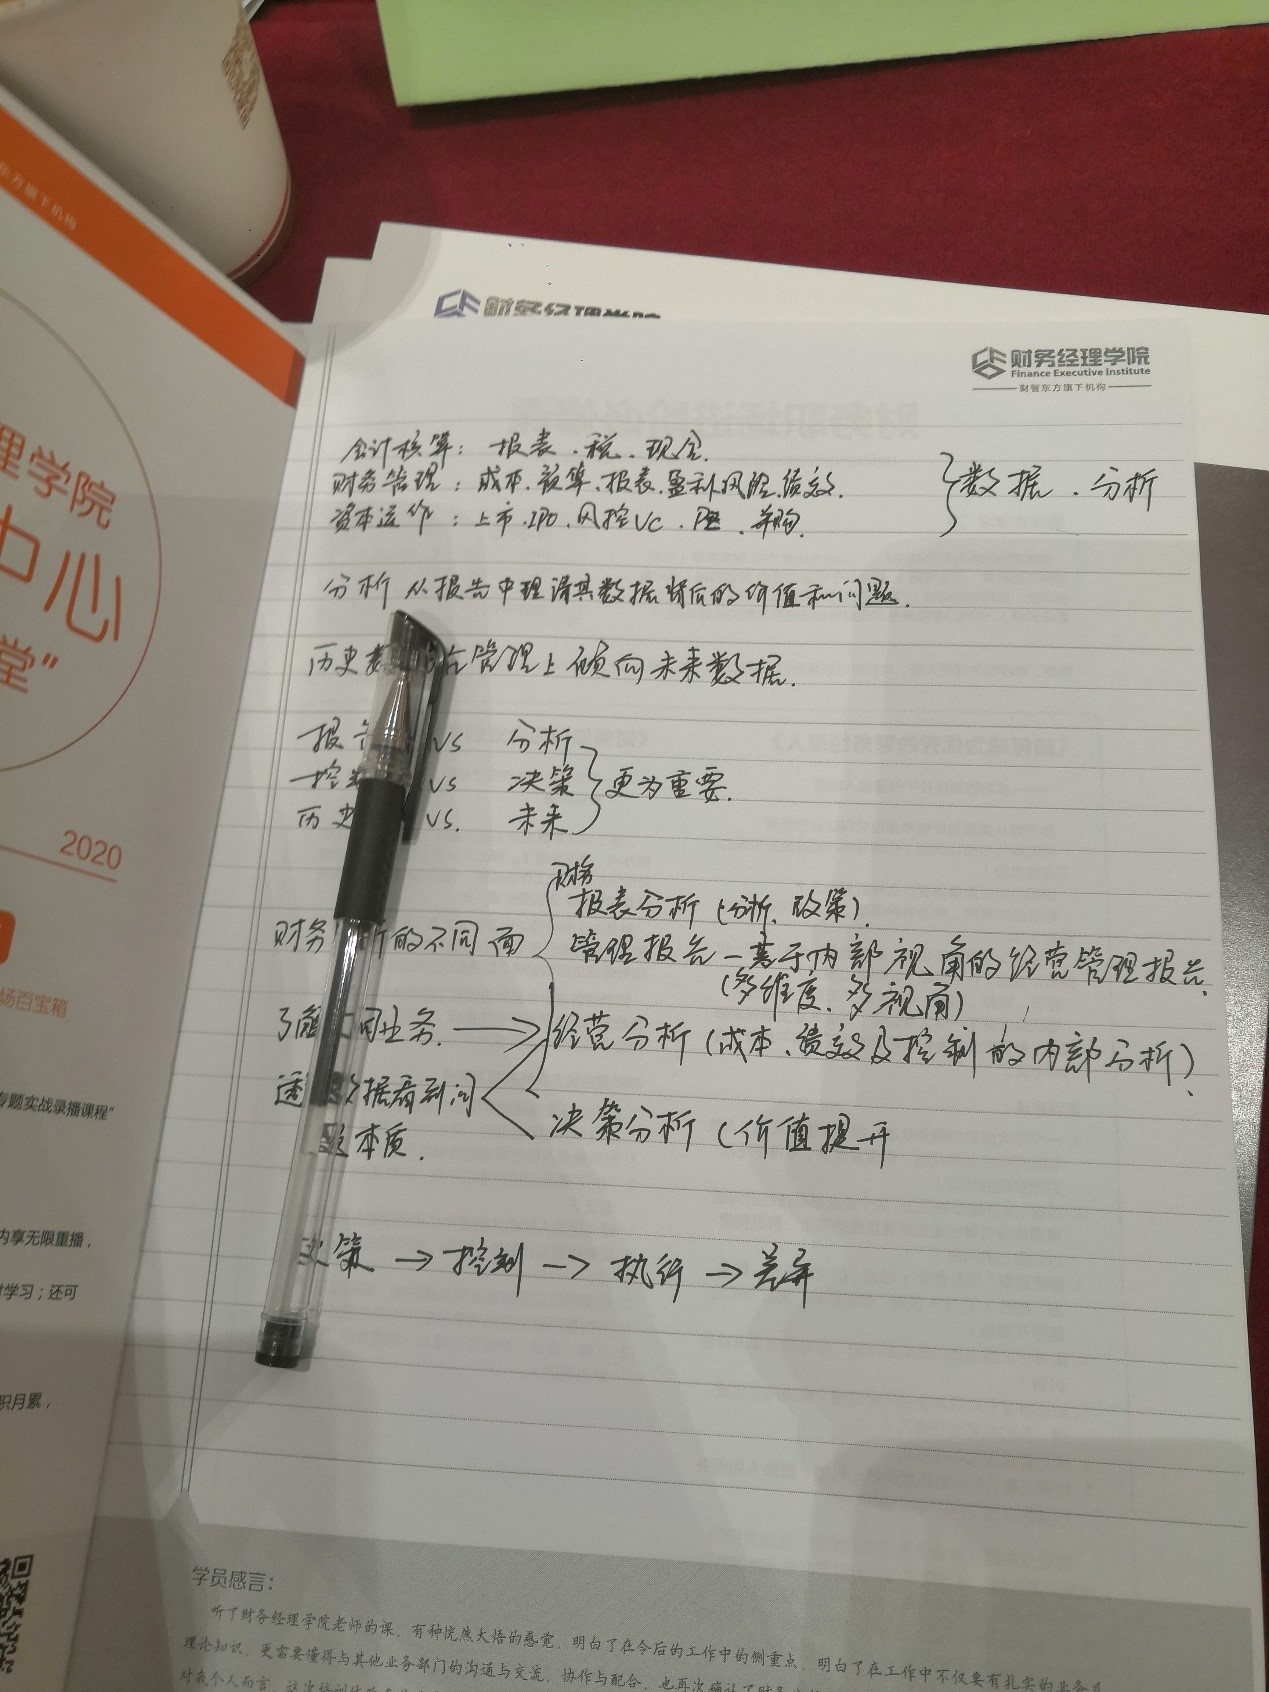 东方旗下机构
理学院
中心
堂”
2020
场百宝箱
专题实战录播课程”
内享无限重播，
时学习；还可
积月累，
财务经理学院
财务经理学院
Finance Executive Institute
财智东方旗下机构
会计核算：报表．税．现金．
财务管理：成本．预算、报表．盈利风险．绩效． 数据．分析
资本运作：上市．IPO．风控VC．PE．并购．
分析 从报告中理清其数据背后的价值和问题．
历史 管理上倾向未来数据．
报 VS 分析
控 VS 决策 更为重要．
历史 VS． 未来
财务
报表分析（分析、政策）
财务 析的不同面 管理报告—基于内部视角的经营管理报告．
（多维度、多视角）
了解 司业务． → 经营分析（成本、绩效及控制的内部分析）
透 数据看到问 决策分析（价值提升
题本质．
决策 → 控制 → 执行 →
学员感言：
听了财务经理学院老师的课，有种恍然大悟的感觉，明白了在今后的工作中的侧重点，明白了在工作中不仅要有扎实的业务及
理论知识，更需要懂得与其他业务部门的沟通与交流，协作与配合，也再次确认了财务
对我个人而言，这次培训